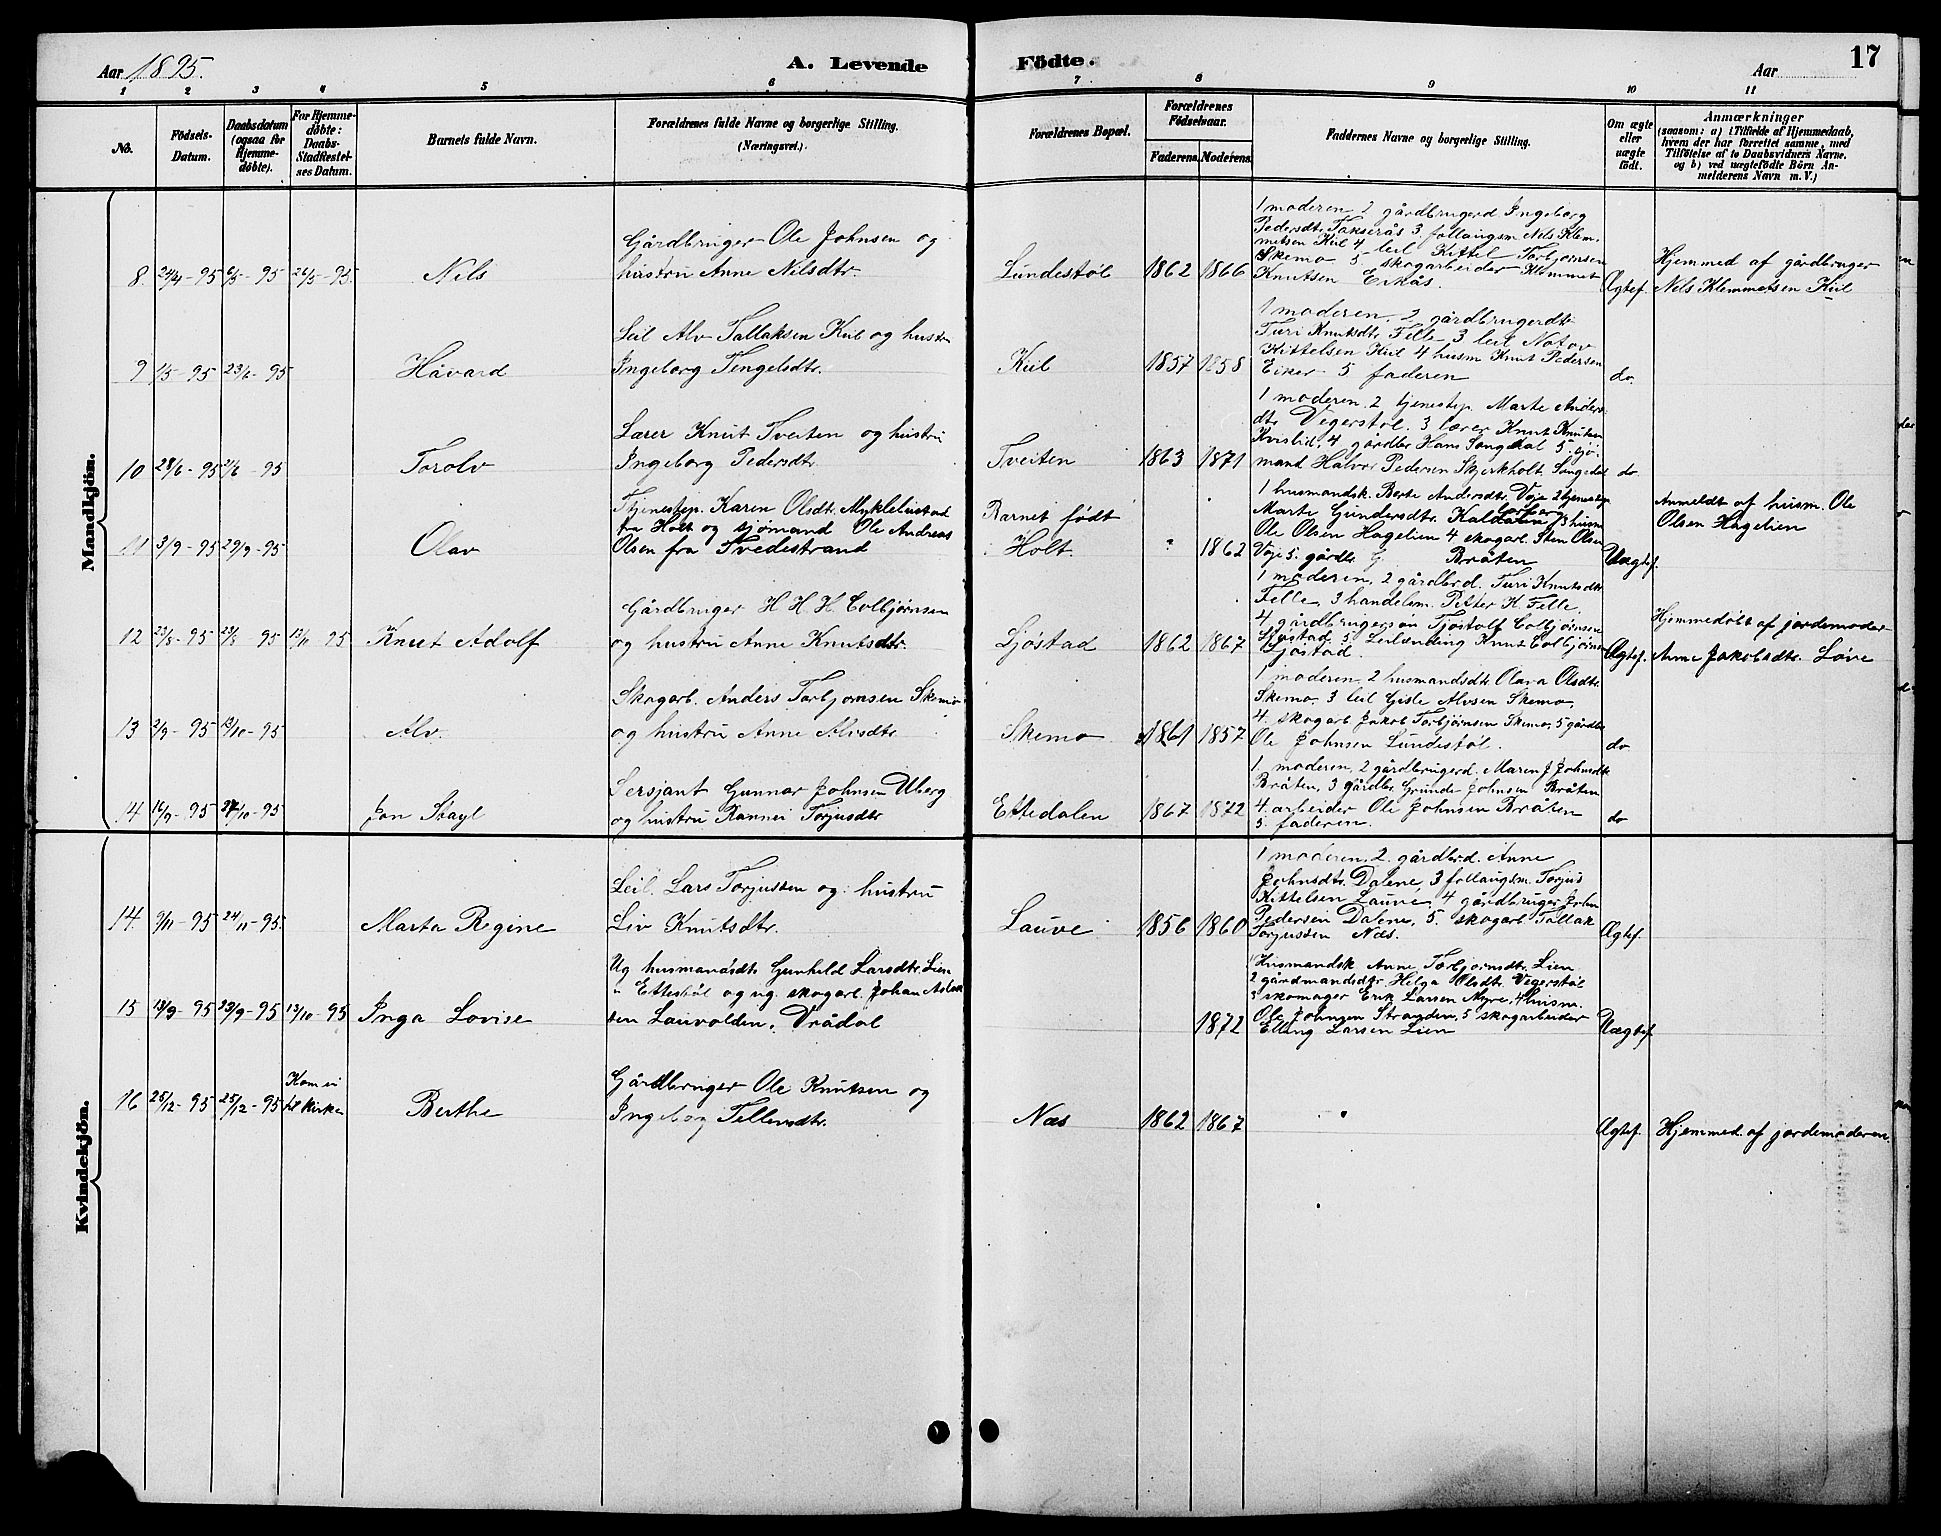 Aar 1895.
A. Levende Födte.
Aar
17
1 2 3 4 5 6 7 8 9 10 11
No.
Födsels-Datum.
Daabsdatum (ogsaa for Hjemme-döbte).
For Hjemme-döbte: Daabs-Stadfestel-ses Datum.
Barnets fulde Navn.
Forældrenes fulde Navne og borgerlige Stilling.
(Næringsvei.)
Forældrenes Bopæl.
Forældrenes Födselsaar.
Faderens. Moderens.
Faddernes Navne og borgerlige Stilling.
Om ægte eller uægte födt.
Anmærkninger
(saasom: a) i Tilfælde af Hjemmedaab, hvem der har forrettet samme, med Tilföielse af to Daabsvidners Navne. og b) ved uægtefödte Börn An-melderens Navn m. V.)
Mandkjön.
8. 24/4-95 6/5-95 26/5-95. Nils
Gårdbruger Ole Johnsen og
hustru Anne Nilsdtr.
Lundestöl 1862 1866
1 moderen 2 gårdbrugerd. Ingeborg
Pedersdtr. 3. follaugsm. Nels Klem-
metsen Kiil 4 leil Kittel Torbjørnsen
Skemo 5. skogarbeider Klemmet
Knutsen Eikås.
Ægtef.
Hjemmed af gårdbruger
Nels Klemmetsen Kiil
9 1/5-95 23/6-95 Håvard
Leil Alv Tallaksen Kiil og hustru
Ingeborg Tengelsdtr.
Kiil 1857 1858
1 moderen. 2 gårdbrugerdtr
Turi Knutsdtr. Felle 3 leil Notov
Kittelsen Kiil 4 husm Knut Pedersen
Eiker 5 faderen
do.
10 -95 -95 Torolv
Lærer Knut Tveiten og hustru
Ingeborg Pedersdtr.
Tveiten 1863 1871
1 moderen. 2 tjenestep. Marte Anders-
dtr Vegerstöl. 3 lærer Knut Knutsen
Kvislid, 4 gårdbr Hans Songdal 5. sjø-
mand Halvor Pedersen Skjerkholt Songedal
do
11 3/9-95 29/9-95 Olav
Tjenestep. Karen Olsdtr. Myklebustad
fra Holt og sjømand Ole Andreas
Olsen fra Tvedestrand
Barnet født
Holt. ? 1862
1 husmandsk. Berte Andersdtr. Voje 2 tjenestep
Marte Gundersdtr. 3 husm
Ole Olsen Hagelien 4 skogarb. Sten Olsen
Voje 5. gårdbr. G. Bråten
Uægtef.
Anmeldt af husm. Ole
Olsen Hagelien
12 23/8-95 -95 13/11 95 Knut Adolf
Gårdbruger H. H. H. Colbjørnsen
og hustru Anne Knutsdtr.
Ljøstad 1862 1867
1 moderen, 2 gårdbrd. Turi Knutsdtr
Felle, 3 handelsm. Petter K. Felle,
4 gårdbrugersøn Tjøstolf Colbjørnsen
Ljøstad 5. Leilænding Knut Colbjørnsen
Ljøstad.
Ægtef.
Hjemmedøbt af jordemoder
Anne Jakobsdtr. Løve
13 2/9-95 13/10-95 Alv.
Skogarb. Anders Torbjørnsen Skemo
og hustru Anne Alvsdtr.
Skemo 1861 1857
1 moderen, 2 husmandsdtr Olava Olsdtr.
Skemo, 3 leil Gisle Alvsen Skemo,
4. skogarb Jakob Torbjørnsen Skemo, 5 gårdbr
Ole Johnsen Lundestøl.
do
14 16/9-95 27/10-95 Jon Stayl
Sersjant Gunnar Johnsen Uberg
og hustru Rannei Torjusdtr
Ettedalen 1867 1872
1. moderen, 2 gårdbrugerd. Maren J Johnsdtr
Bråten, 3 gårdbr. Grunde Johnsen Bråten
4. arbeider Ole Johnsen Bråten
5. faderen.
do
Kvindekjön.
14. 9/11-95 24/11-95. Marta Regine
Leil. Lars Torjussen og hustru
Liv Knutsdtr.
Lauve 1856 1860
1 moderen, 2. gårdbrd. Anne
Johnsdtr. Dalene, 3 follaugsm. Torjus
Kittelsen Lauve, 4 gårdbruger John
Pedersen Dalene, 5. skogarb Tallak
Torjussen Næs.
Ægtef.
15 18/9-95 23/9-95 13/10-95 Inga Lovise
Ug husmandsdtr Gunhild Larsdtr. Lien
Ettestöl og ug. skogarb. Johan Aslak
sen Lauvolden, Vrådal
1872
1 Husmandsk Anne Torbjørnsdtr. Lien
2 gårdmandsdtr Helga Olsdtr. Vegerstøl
3 skomager Erik Larsen Myre, 4 husm.
Ole Johnsen Stranden, 5 skogarbeider
Elling Larsen Lien
Uægtef.
16 25/12-95 25/12-95 Kom ei
til kirken
Berthe
Gårdbruger Ole Knutsen og
Ingeborg Tellevsdtr.
Næs 1862 1867
Ægtef.
Hjemmed. af jordemoderen.